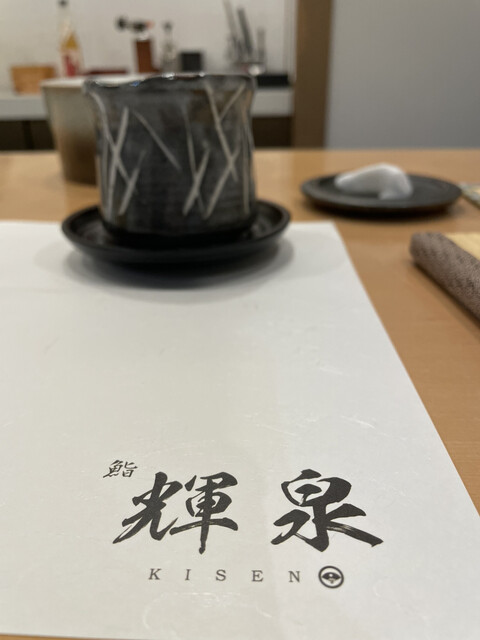 鮨
輝泉
KISEN